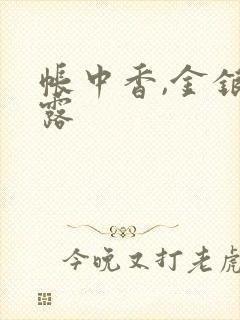 帐中香,金银
露
今晚又打老虎